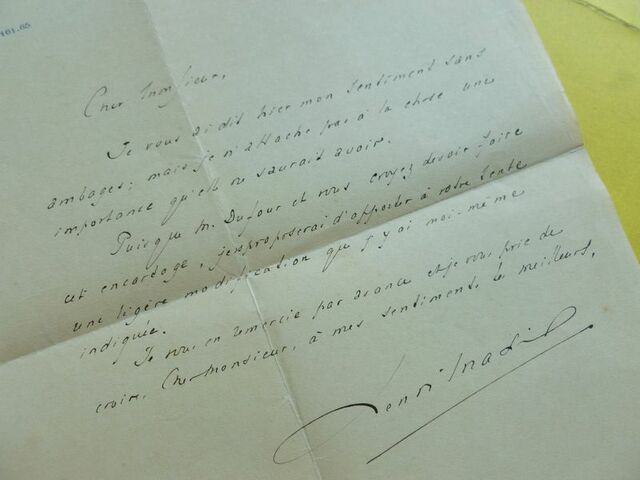 161.65
Cher Monsieur,
Je vous ai dit hier mon sentiment sans
ambages; mais je n'attache pas à la chose une
importance qu'elle ne saurait avoir.
Puisque M. Dufour et vous croyez devoir faire
cet encartage, je proposerai d'apporter à votre texte
une légère modification que j'y ai moi-même
indiquée.
Je vous en remercie par avance et je vous prie de
croire, Cher Monsieur, à mes sentiments les meilleurs,
Henri